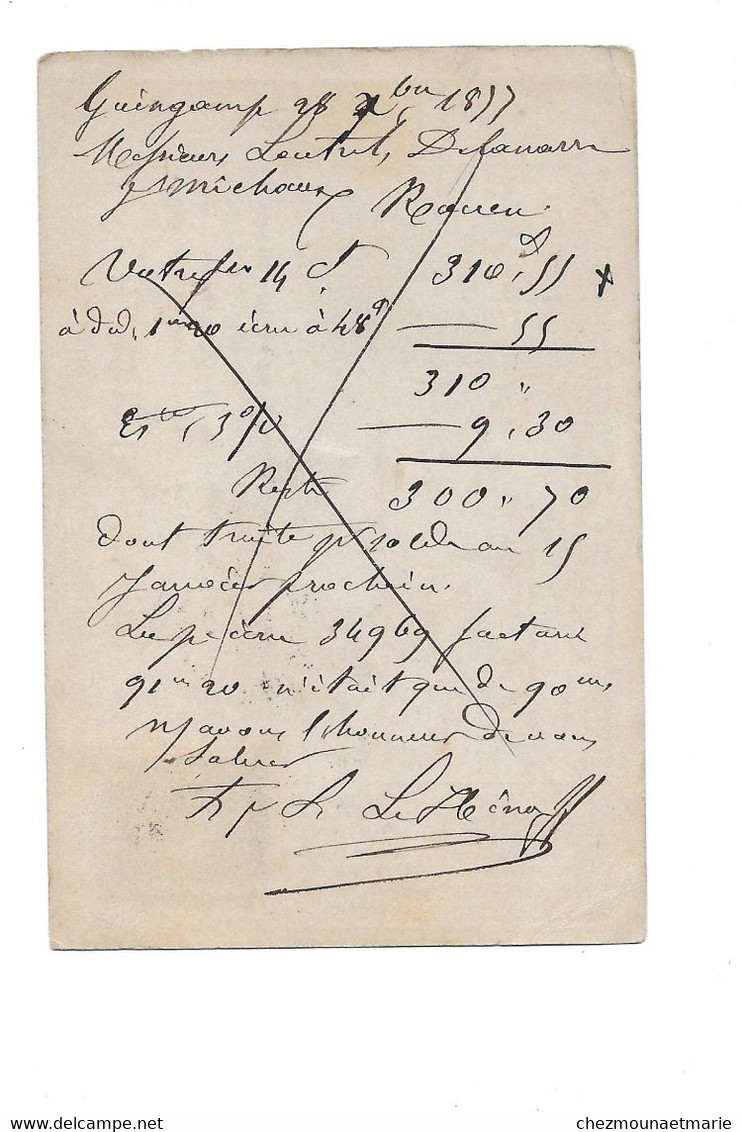 Guingamp 28 Xbre 1877
Messieurs Loutrel, Delamarre
& Michaux Rouen
Votre fre 14 ct 310,55 x
à déd. 1m20 écru à 48 — 55
310 "
Esc 3 % — 9,30
Reste 300 " 70
dont traite pr solde au 15
Janvier prochain.
La pièce 34969 facturée
91m20 n'était que de 90m
N/ avons l'honneur de vous
saluer
Le Hénaff
chezmounaetmarie